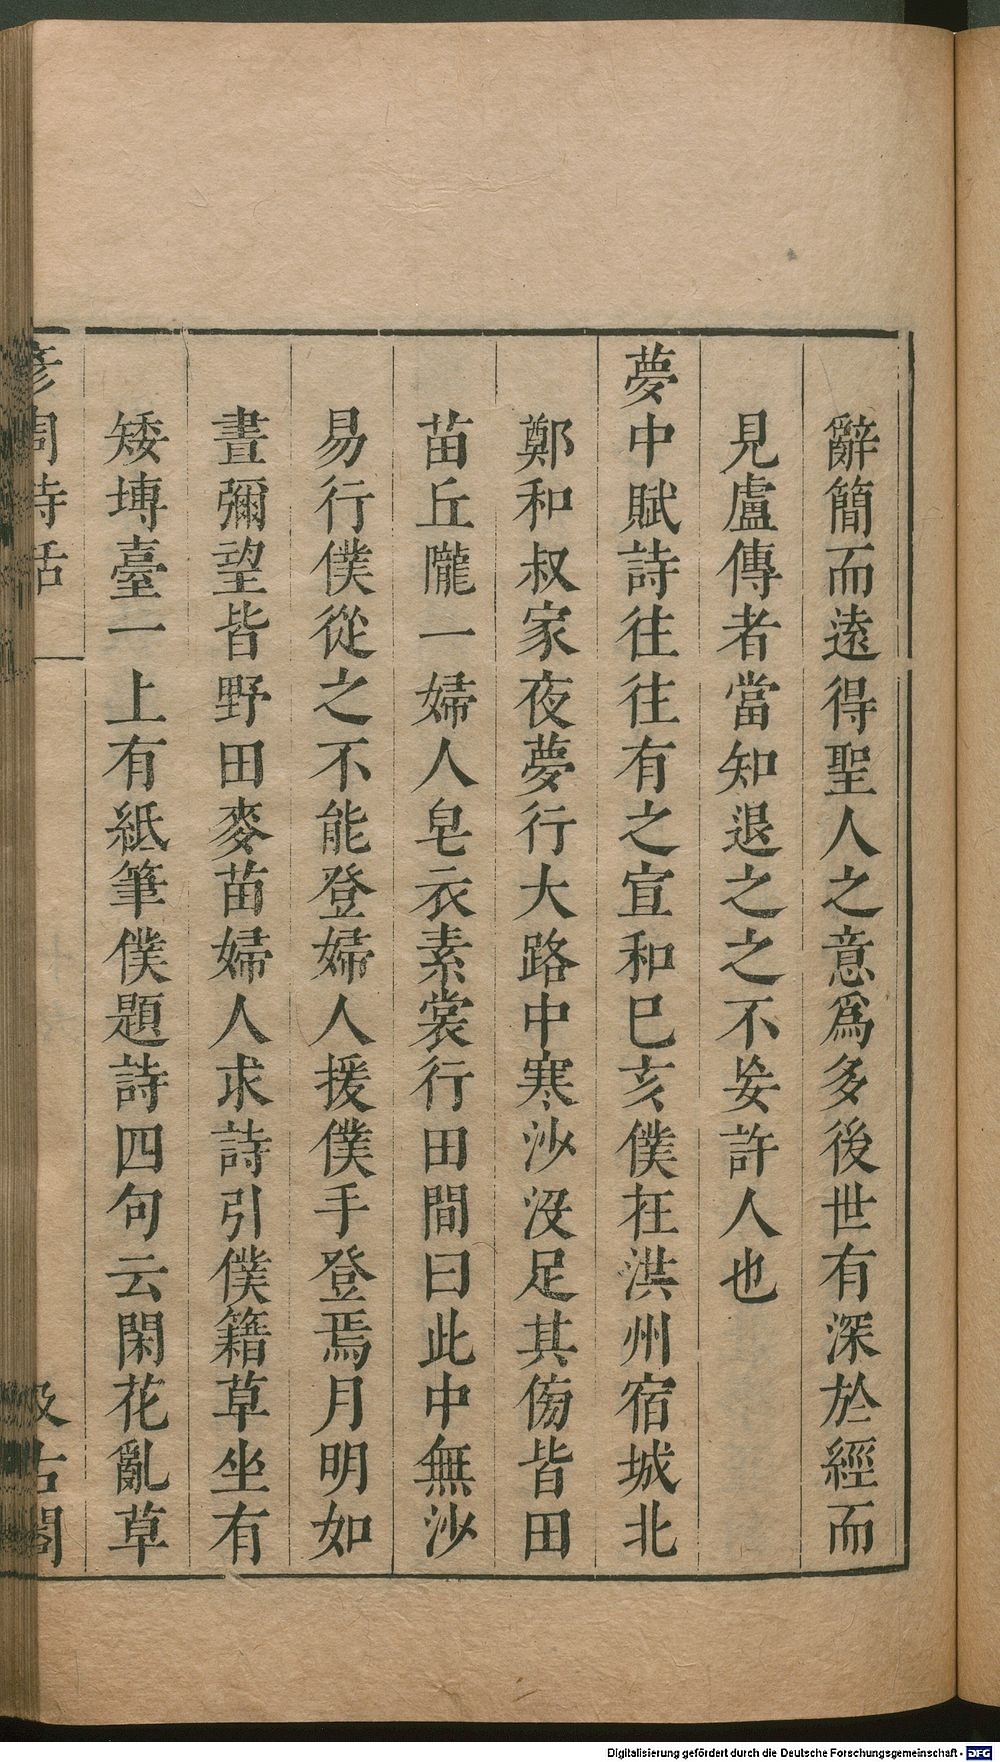 辭簡而遠得聖人之意爲多後世有深於經而
見盧傳者當知退之之不妄許人也
夢中賦詩往往有之宣和巳亥僕在洪州宿城北
鄭和叔家夜夢行大路中寒沙沒足其傍皆田
苗丘隴一婦人皂衣素裳行田間曰此中無沙
易行僕從之不能登婦人援僕手登焉月明如
晝彌望皆野田麥苗婦人求詩引僕籍草坐有
矮塼臺一上有紙筆僕題詩四句云閑花亂草
彥周詩話
汲古閣
Digitalisierung gefördert durch die Deutsche Forschungsgemeinschaft - DFG